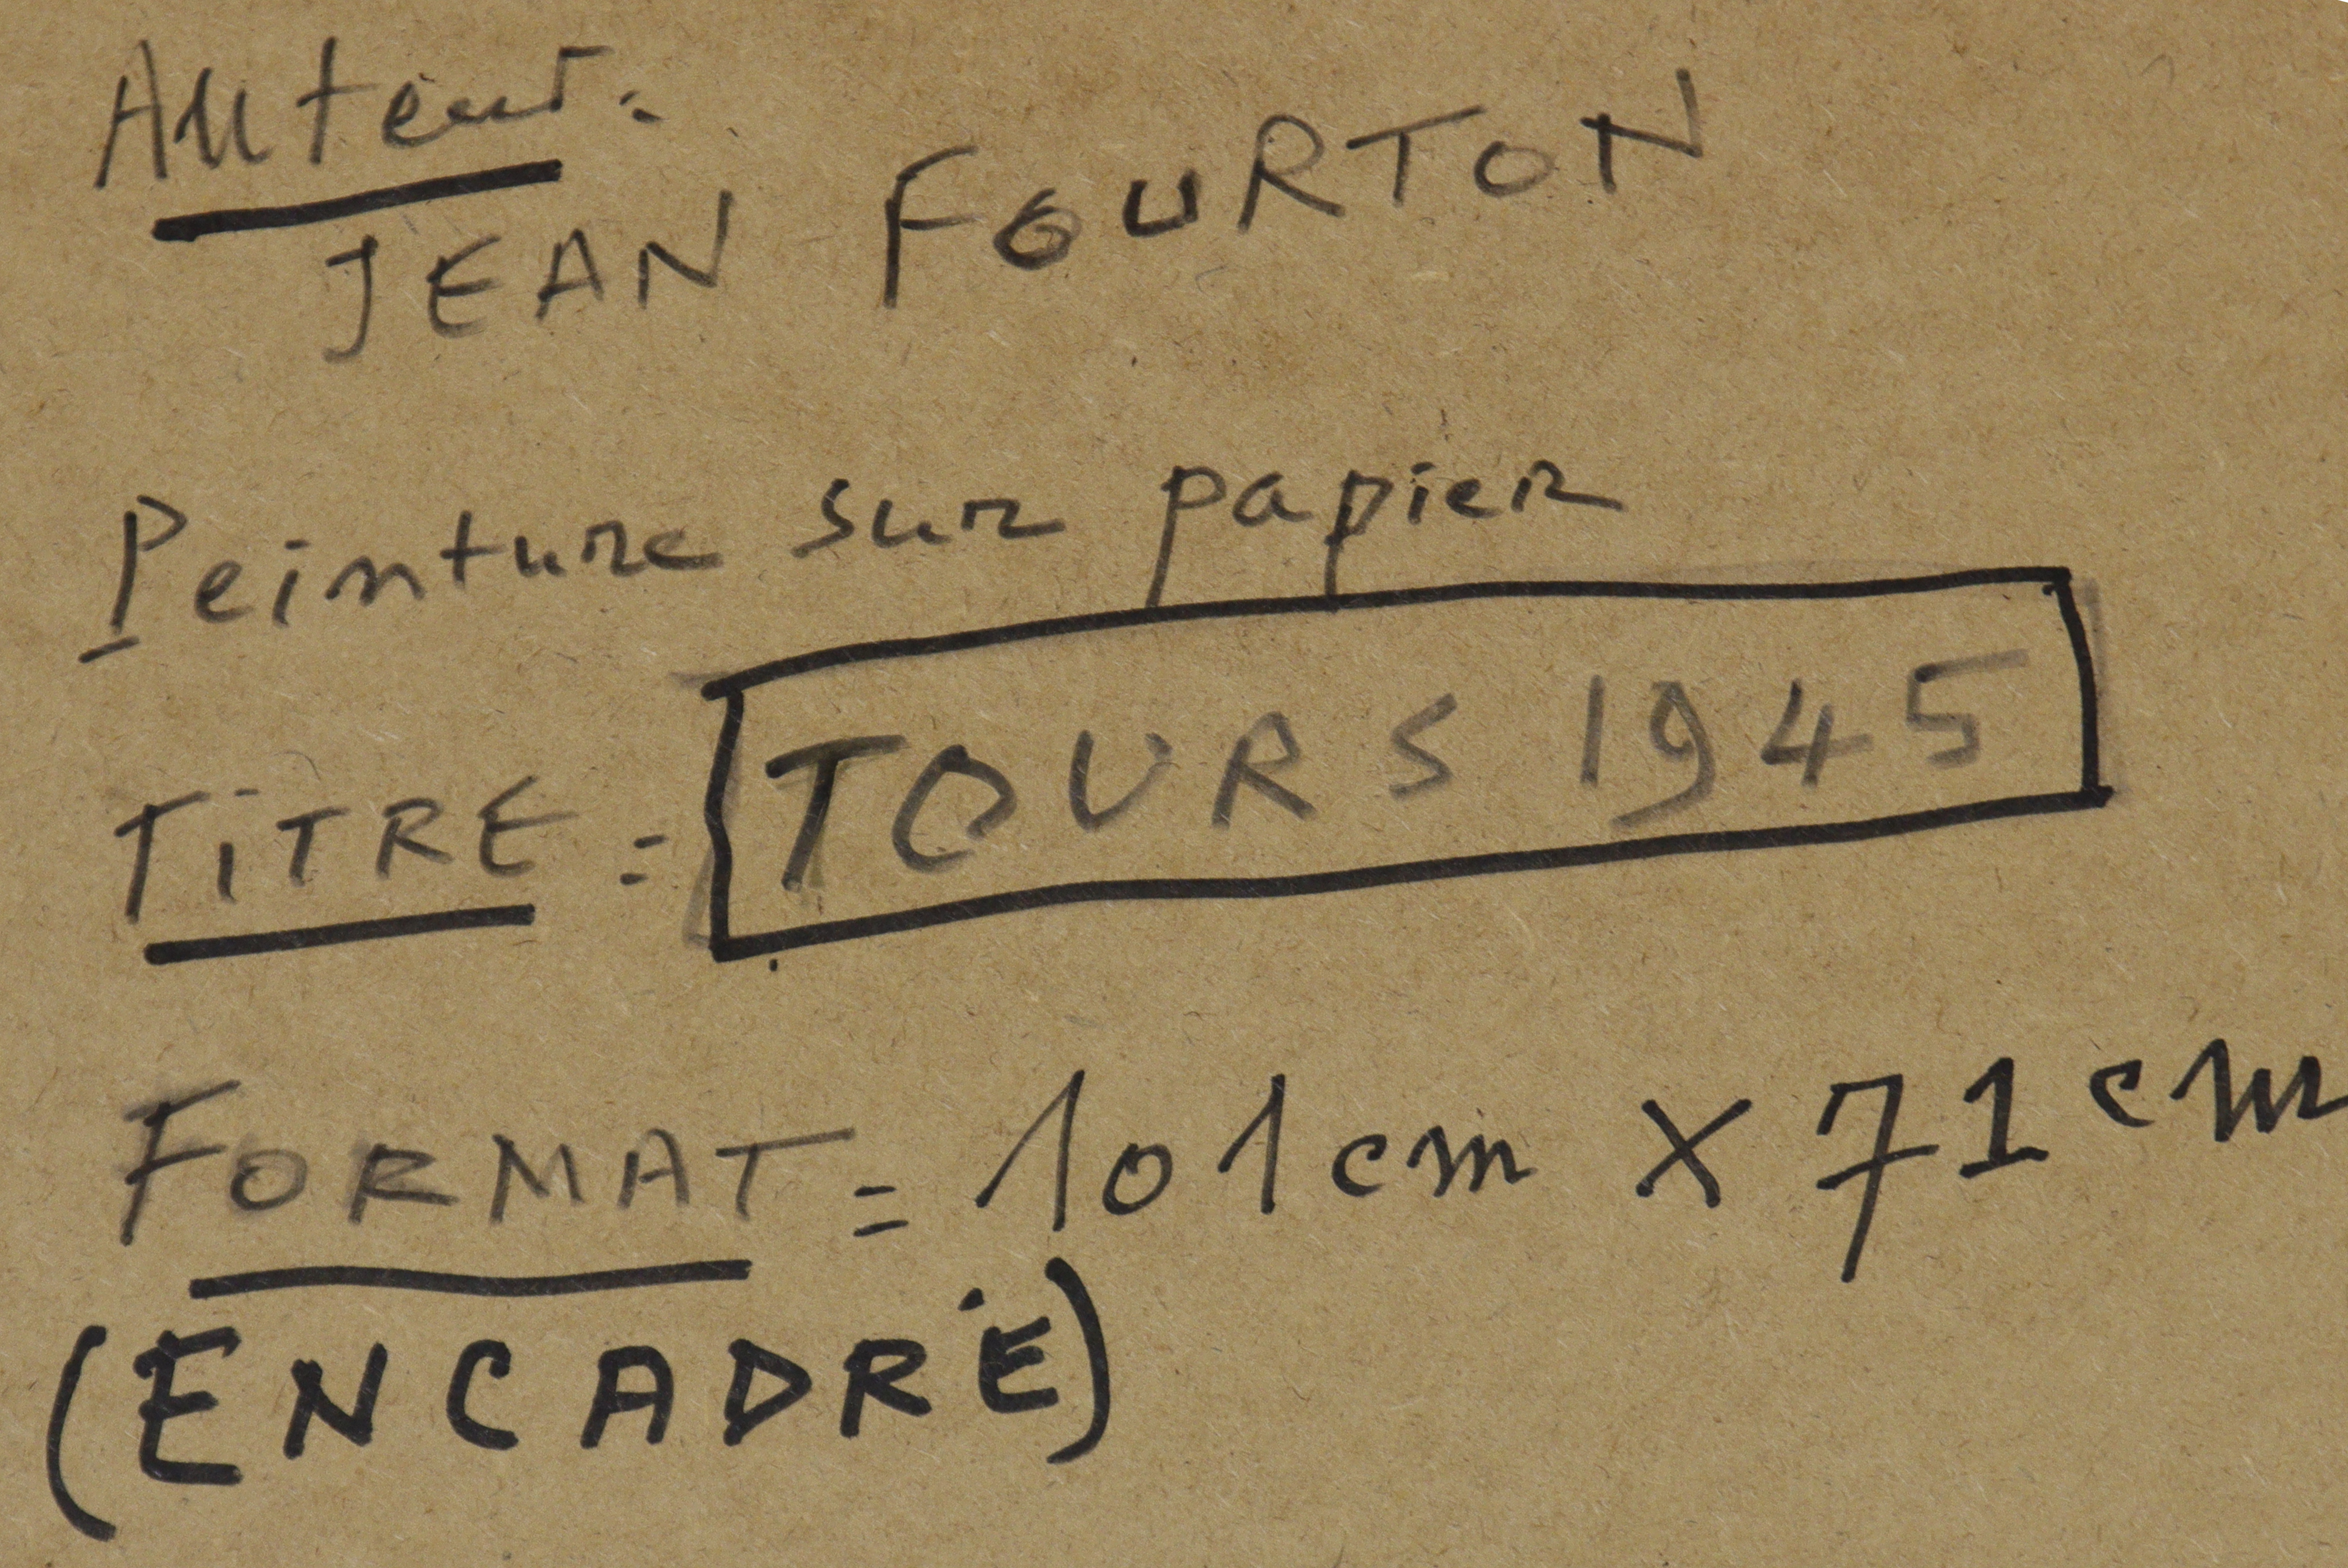 Auteur:
JEAN FOURTON
Peinture sur papier
TiTRE = TOURS 1945
FORMAT = 101cm X 71cm
(ENCADRÉ)